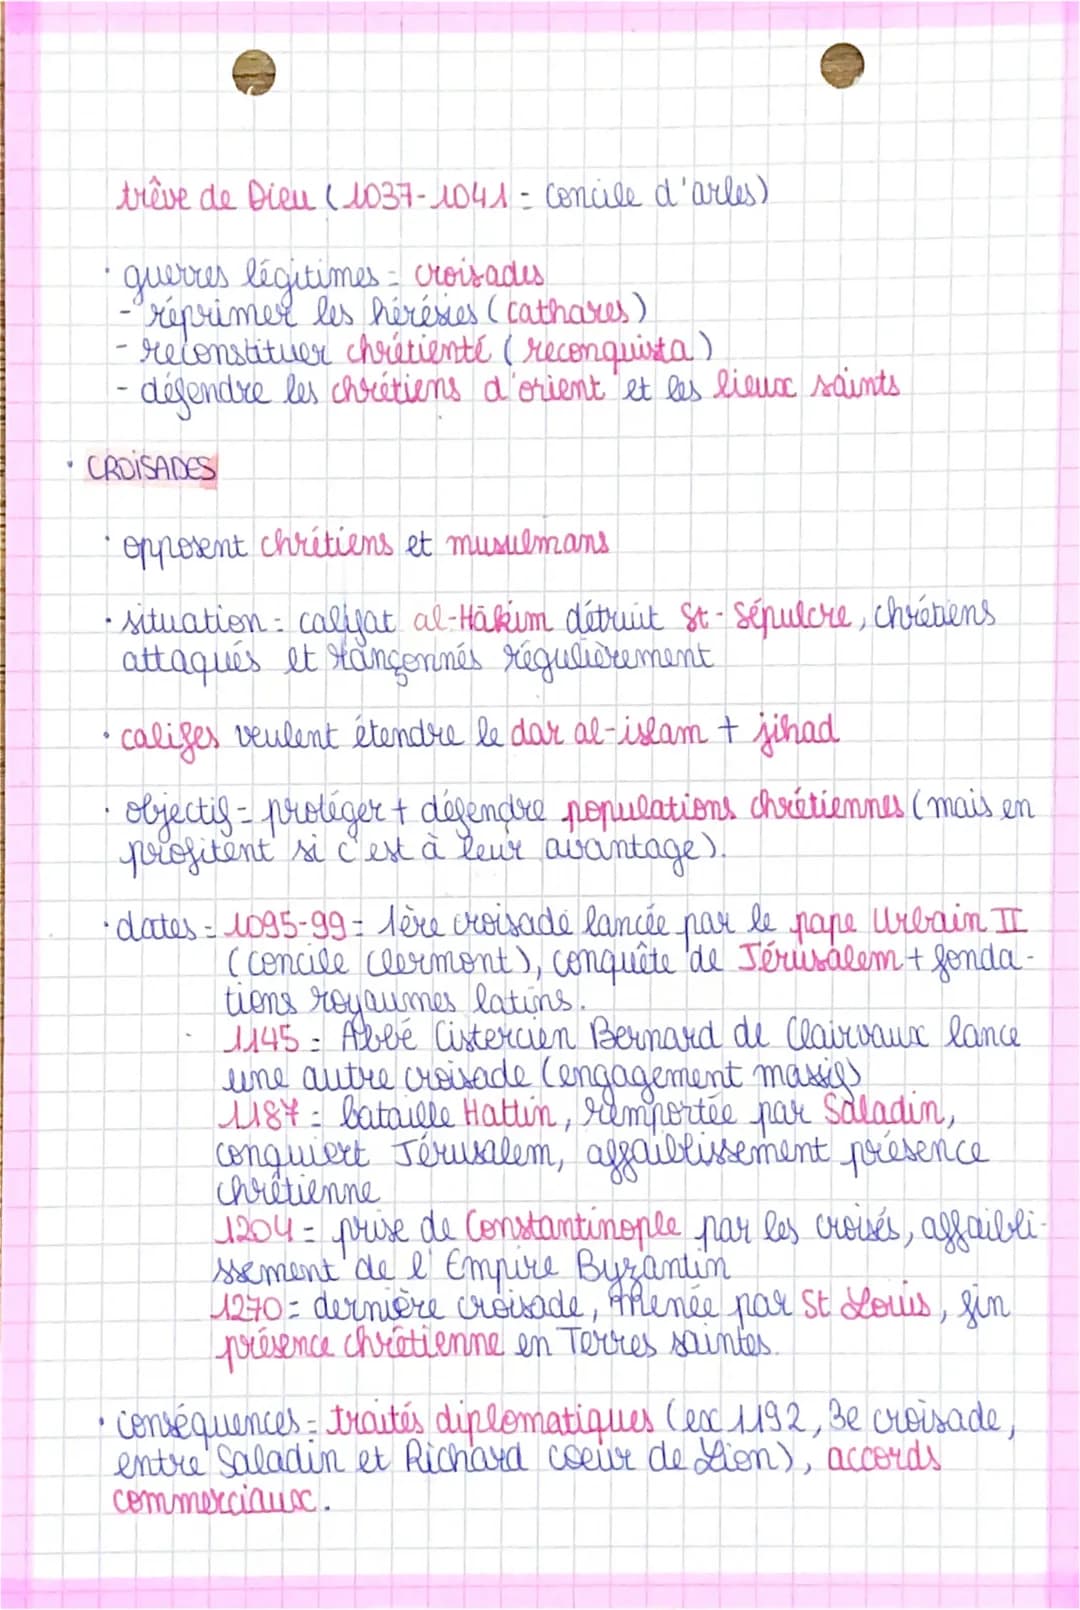 trêve de Dieu (1037-1041 = concile d'arles)
· guerres légitimes = croisades
- réprimer les hérésies (cathares)
- reconstituer chrétienté (reconquista)
- défendre les chrétiens d'orient et les lieux saints
· CROISADES
· opposent chrétiens et musulmans
· situation = califat al-Hākim détruit St-Sépulcre, chrétiens
attaqués et rançonnés régulièrement
· califes veulent étendre le dar al-islam + jihad
· objectif = protéger + défendre populations chrétiennes (mais en
profitent si c'est à leur avantage).
· dates = 1095-99 = 1ère croisade lancée par le pape Urbain II
(concile clermont), conquête de Jérusalem + fonda-
tions royaumes latins.
1145 = Abbé Cistercien Bernard de Clairvaux lance
une autre croisade (engagement massif)
1187 = bataille Hattin, remportée par Saladin,
conquiert Jérusalem, affaiblissement présence
chrétienne
1204 = prise de Constantinople par les croisés, affaibli-
ssement de l'Empire Byzantin
1270 = dernière croisade, menée par St Louis, fin
présence chrétienne en Terres saintes.
· conséquences = traités diplomatiques (ex 1192, 3e croisade,
entre Saladin et Richard coeur de Lion), accords
commerciaux.